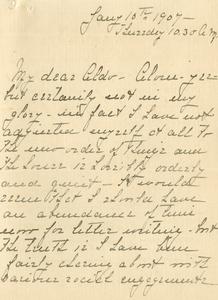 Jany 10th 1907 -
Thursday 10.30 A.M.
My dear Aldo - Alone - yes -
but certainly not in my
glory - in fact I have not
adjusted myself at all to
the new order of things and
the house is horribly orderly
and quiet - It would
seem that I should have
an abundance of time
now for letter writing - but
the truth is I have been
fairly chasing about with
various social engagements